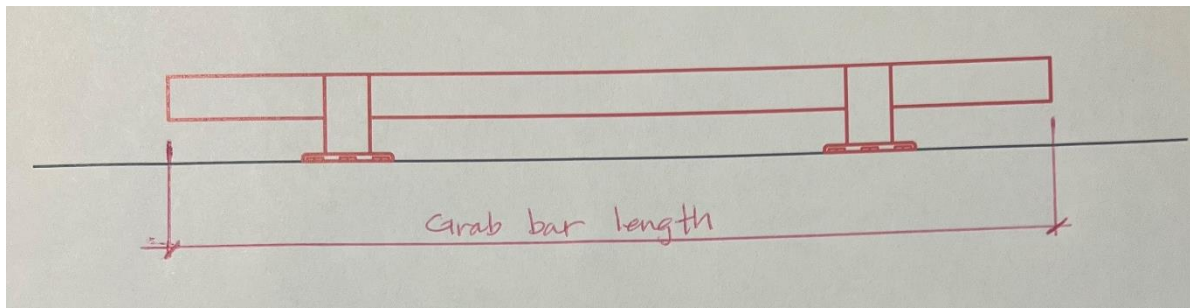 Grab bar length